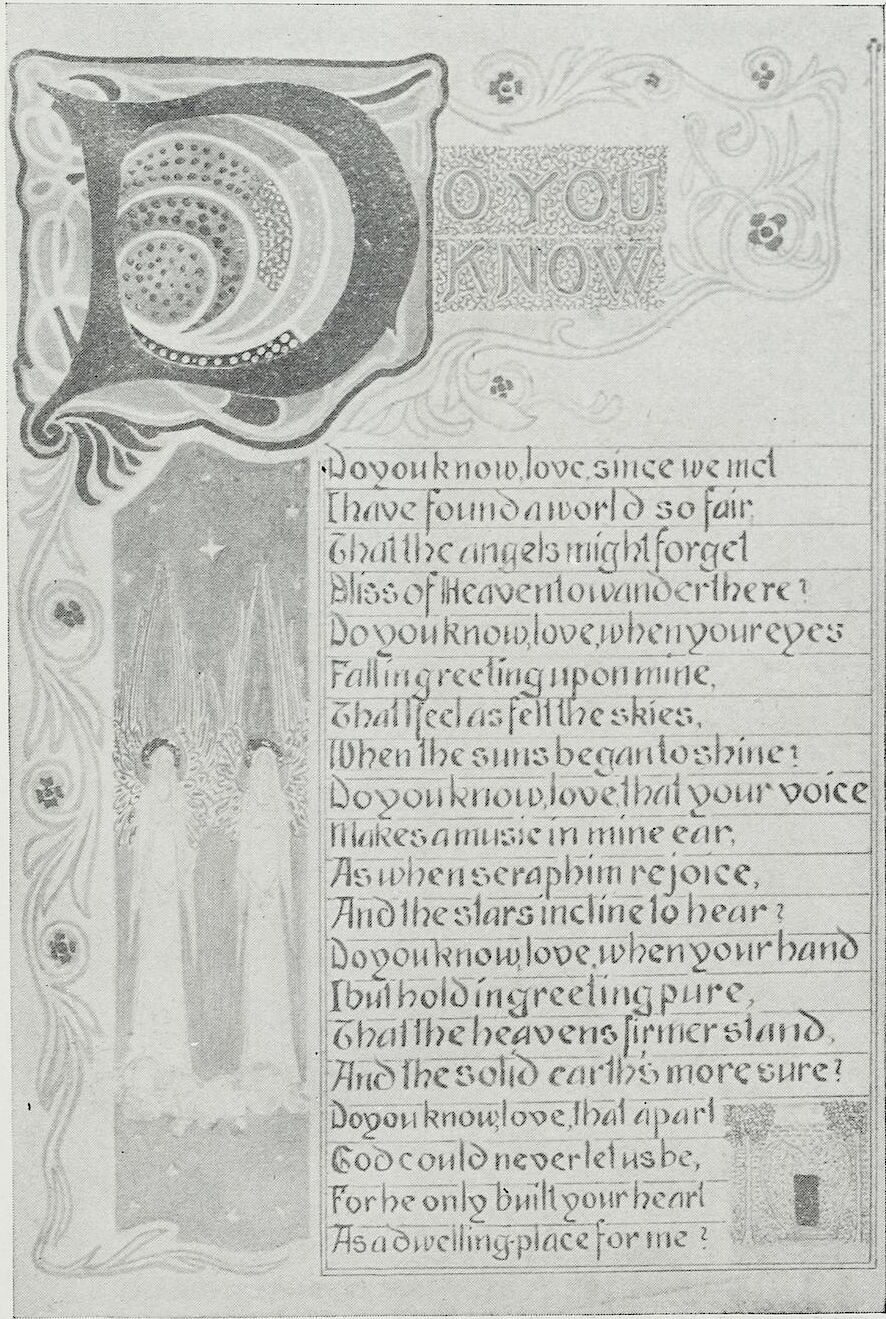 DO YOU
KNOW
Do you know, love, since we met
I have found a world so fair,
That the angels might forget
Bliss of Heaven to wander there?
Do you know, love, when your eyes
Fall in greeting upon mine,
That I feel as felt the skies,
When the suns began to shine?
Do you know, love, that your voice
Makes a music in mine ear,
As when seraphim rejoice,
And the stars incline to hear?
Do you know, love, when your hand
I but hold in greeting pure,
That the heavens firmer stand,
And the solid earth's more sure?
Do you know, love, that apart
God could never let us be,
For he only built your heart
As a dwelling-place for me?